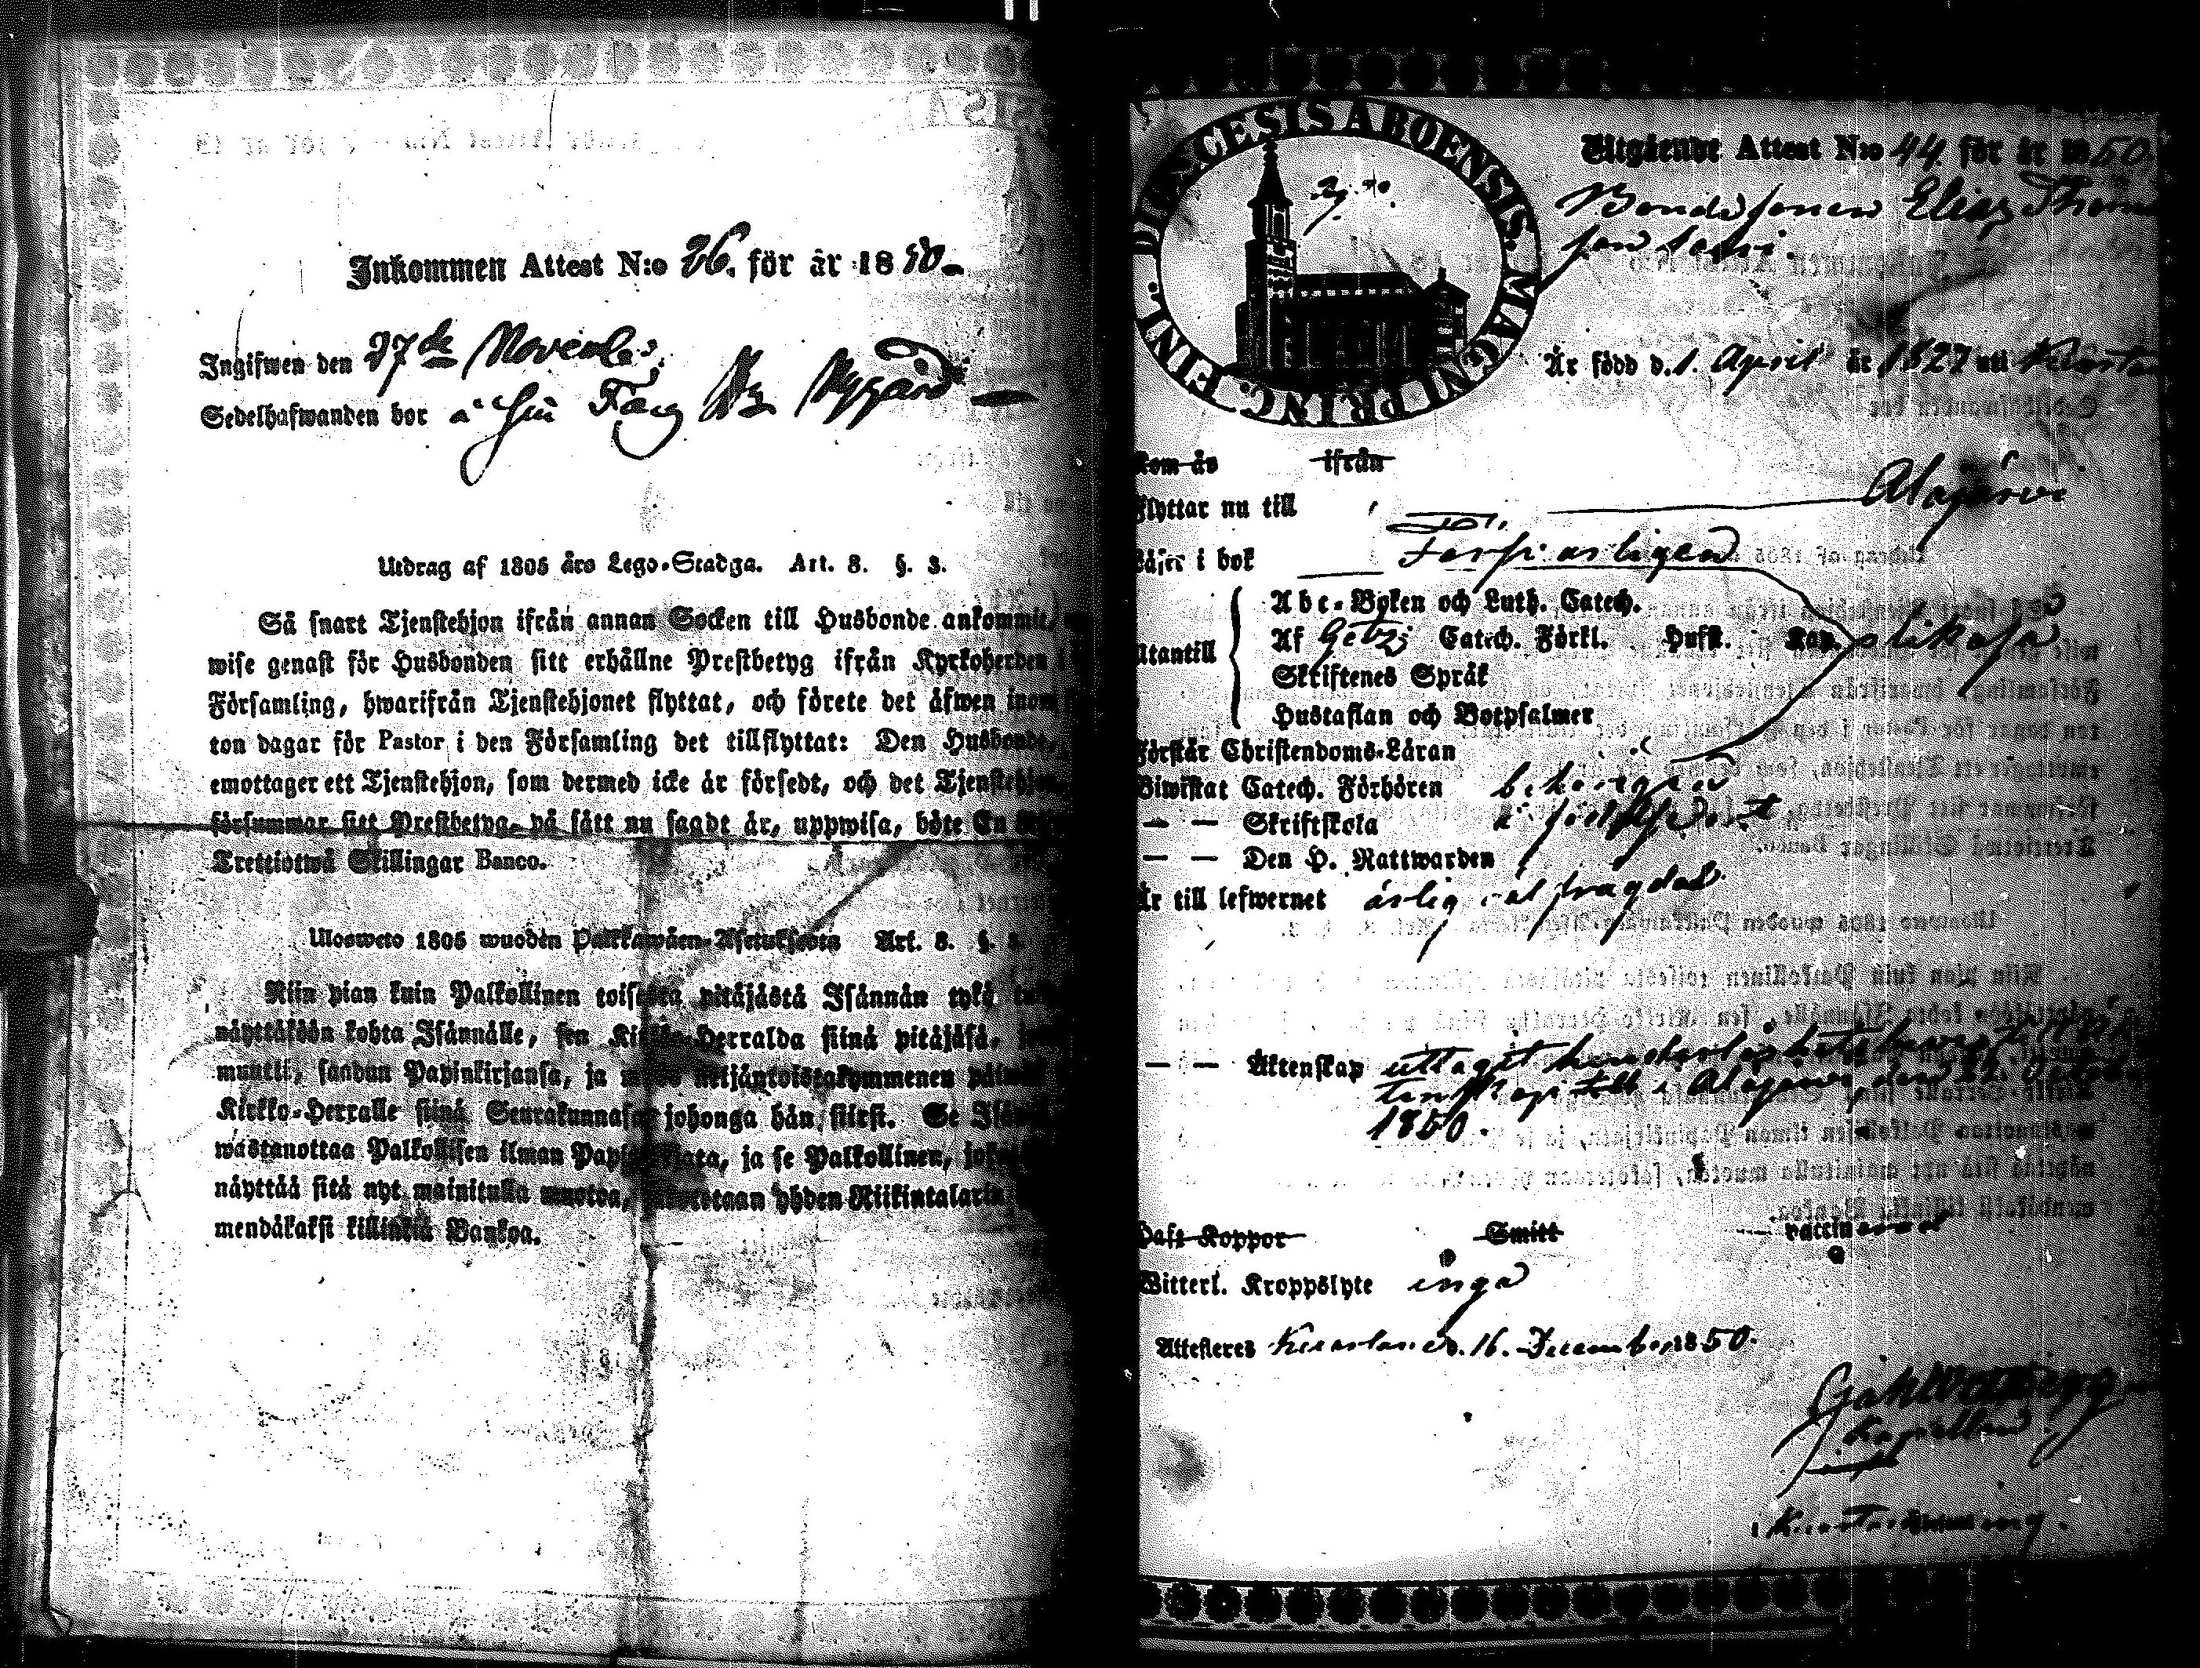 Inkommen Attest N:o 26. för år 1850.
Ingifwen den 27de Novemb:
Sedelhafwanden bor å Nygård
Utdrag af 1805 års Lego-Stadga. Art. 8. §. 3.
Så snart Tjenstehjon ifrån annan Socken till Husbonde ankommit,
wise genast för Husbonden sitt erhållne Prestbetyg ifrån Kyrkoherden i
Församling, hwarifrån Tjenstehjonet flyttat, och förete det äfwen inom
ton dagar för Pastor i den Församling det tillflyttat: Den Husbonde,
emottager ett Tjenstehjon, som dermed icke är försedt, och det Tjenstehjon
försummar sitt Prestbetyg, på sått nu sagdt är, uppwisa, böte En
Trettiotwå Skillingar Banco.
Ulosweto 1805 wuoden Palkkawäen-Asetuksesta Art. 8. §. 3.
Niin pian kuin Palkollinen toisesta pitäjästä Isännän tykö
näyttäköön kohta Isännälle, sen Kirkko-Herralda siinä pitäjäsä,
muutti, saadun Papinkirjansa, ja neljäntoistakymmenen päiwän
Kirkko-Herralle siinä Seurakunnasa johonga hän siirsi. Se Isäntä
wastanottaa Palkollisen ilman Papinkirjata, ja se Palkollinen, joka
näyttää sitä nyt mainitulla muotoa, sakotetaan yhden Riikintalarin
mendäkaksi killinkiä Bankoa.
DIOECESIS ABOENSIS. MAGNI PRINC. FINL.
Utgående Attest N:o 44. för år 1850.
Bondesonen Elias Thomas
son
Är född d. 1. April år 1827 uti
Kom år ifrån
Flyttar nu till Alajärvi
Läser i bok Försvarligen
Utantill
Abc-Boken och Luth. Catech.
Af Catech. Förkl. Husft.
Skriftenes Språk
Hustaflan och Botpsalmer
likaså
Förstår Christendoms-Läran
Biwistat Catech. Förhören behörigen
— — Skriftskola
— — Den H. Nattwarden
Är till lefwernet ärlig och frägdad
— — Äktenskap uttagit hinderslöshetsbevis till Äk
tenskap i Alajärvi den 22. October
1850.
Haft Koppor Smitt vaccinerad
Witterl. Kroppslyte inga
Attesteres d. 16. December 1850.
Kapellan